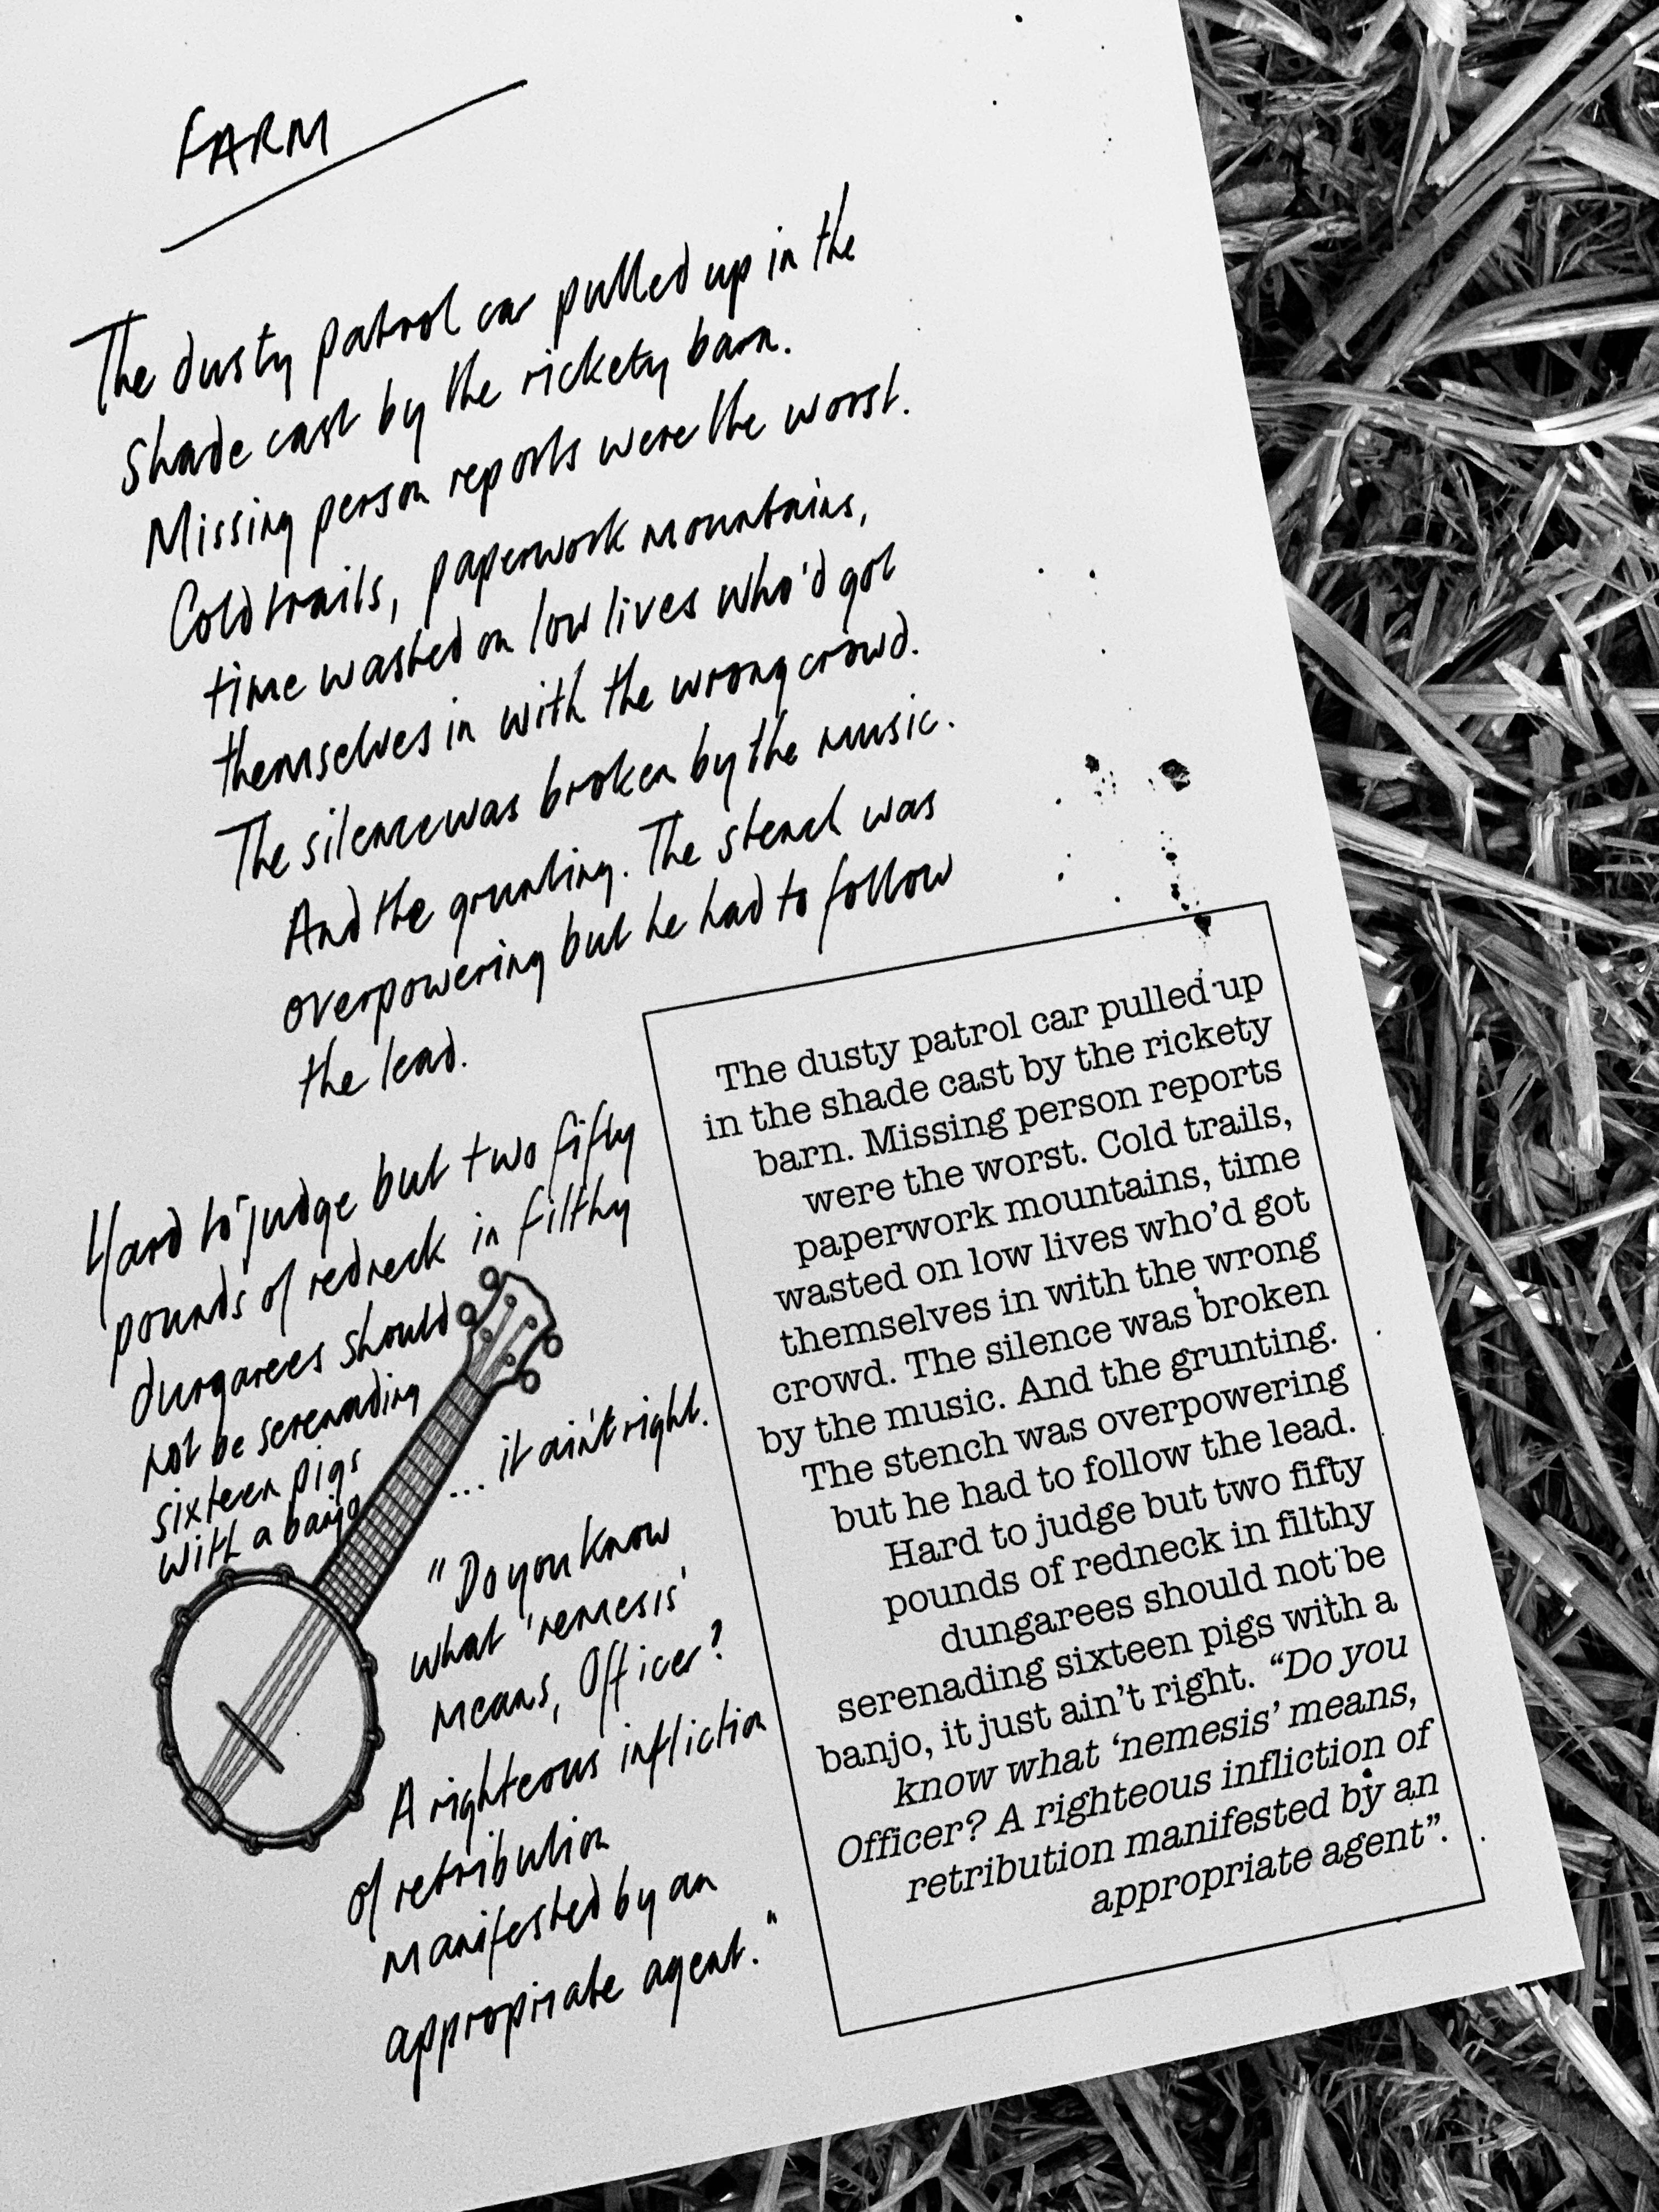 FARM
The dusty patrol car pulled up in the
shade cast by the rickety barn.
Missing person reports were the worst.
Cold trails, paperwork mountains,
time wasted on low lives who'd got
themselves in with the wrong crowd.
The silence was broken by the music.
And the grunting. The stench was
overpowering but he had to follow
the lead.
Hard to judge but two fifty
pounds of redneck in filthy
dungarees should
not be serenading
sixteen pigs
with a banjo
... it ain't right.
"Do you know
what 'nemesis'
means, Officer?
A righteous infliction
of retribution
manifested by an
appropriate agent."
The dusty patrol car pulled up
in the shade cast by the rickety
barn. Missing person reports
were the worst. Cold trails,
paperwork mountains, time
wasted on low lives who'd got
themselves in with the wrong
crowd. The silence was broken
by the music. And the grunting.
The stench was overpowering
but he had to follow the lead.
Hard to judge but two fifty
pounds of redneck in filthy
dungarees should not be
serenading sixteen pigs with a
banjo, it just ain't right. “Do you
know what ‘nemesis’ means,
Officer? A righteous infliction of
retribution manifested by an
appropriate agent”.